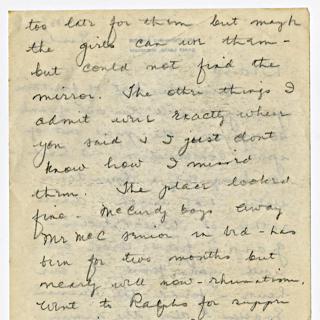 too late for them but mayb
the girls can use them -
but could not find the
mirror. The other things I
admit were exactly where
you said & I just dont
know how I missed
them. The place looked
fine - McCurdy boys away
Mr McC senior in bed - has
been for two months but
nearly well now - rheumatism.
Went to Ralphs for supper